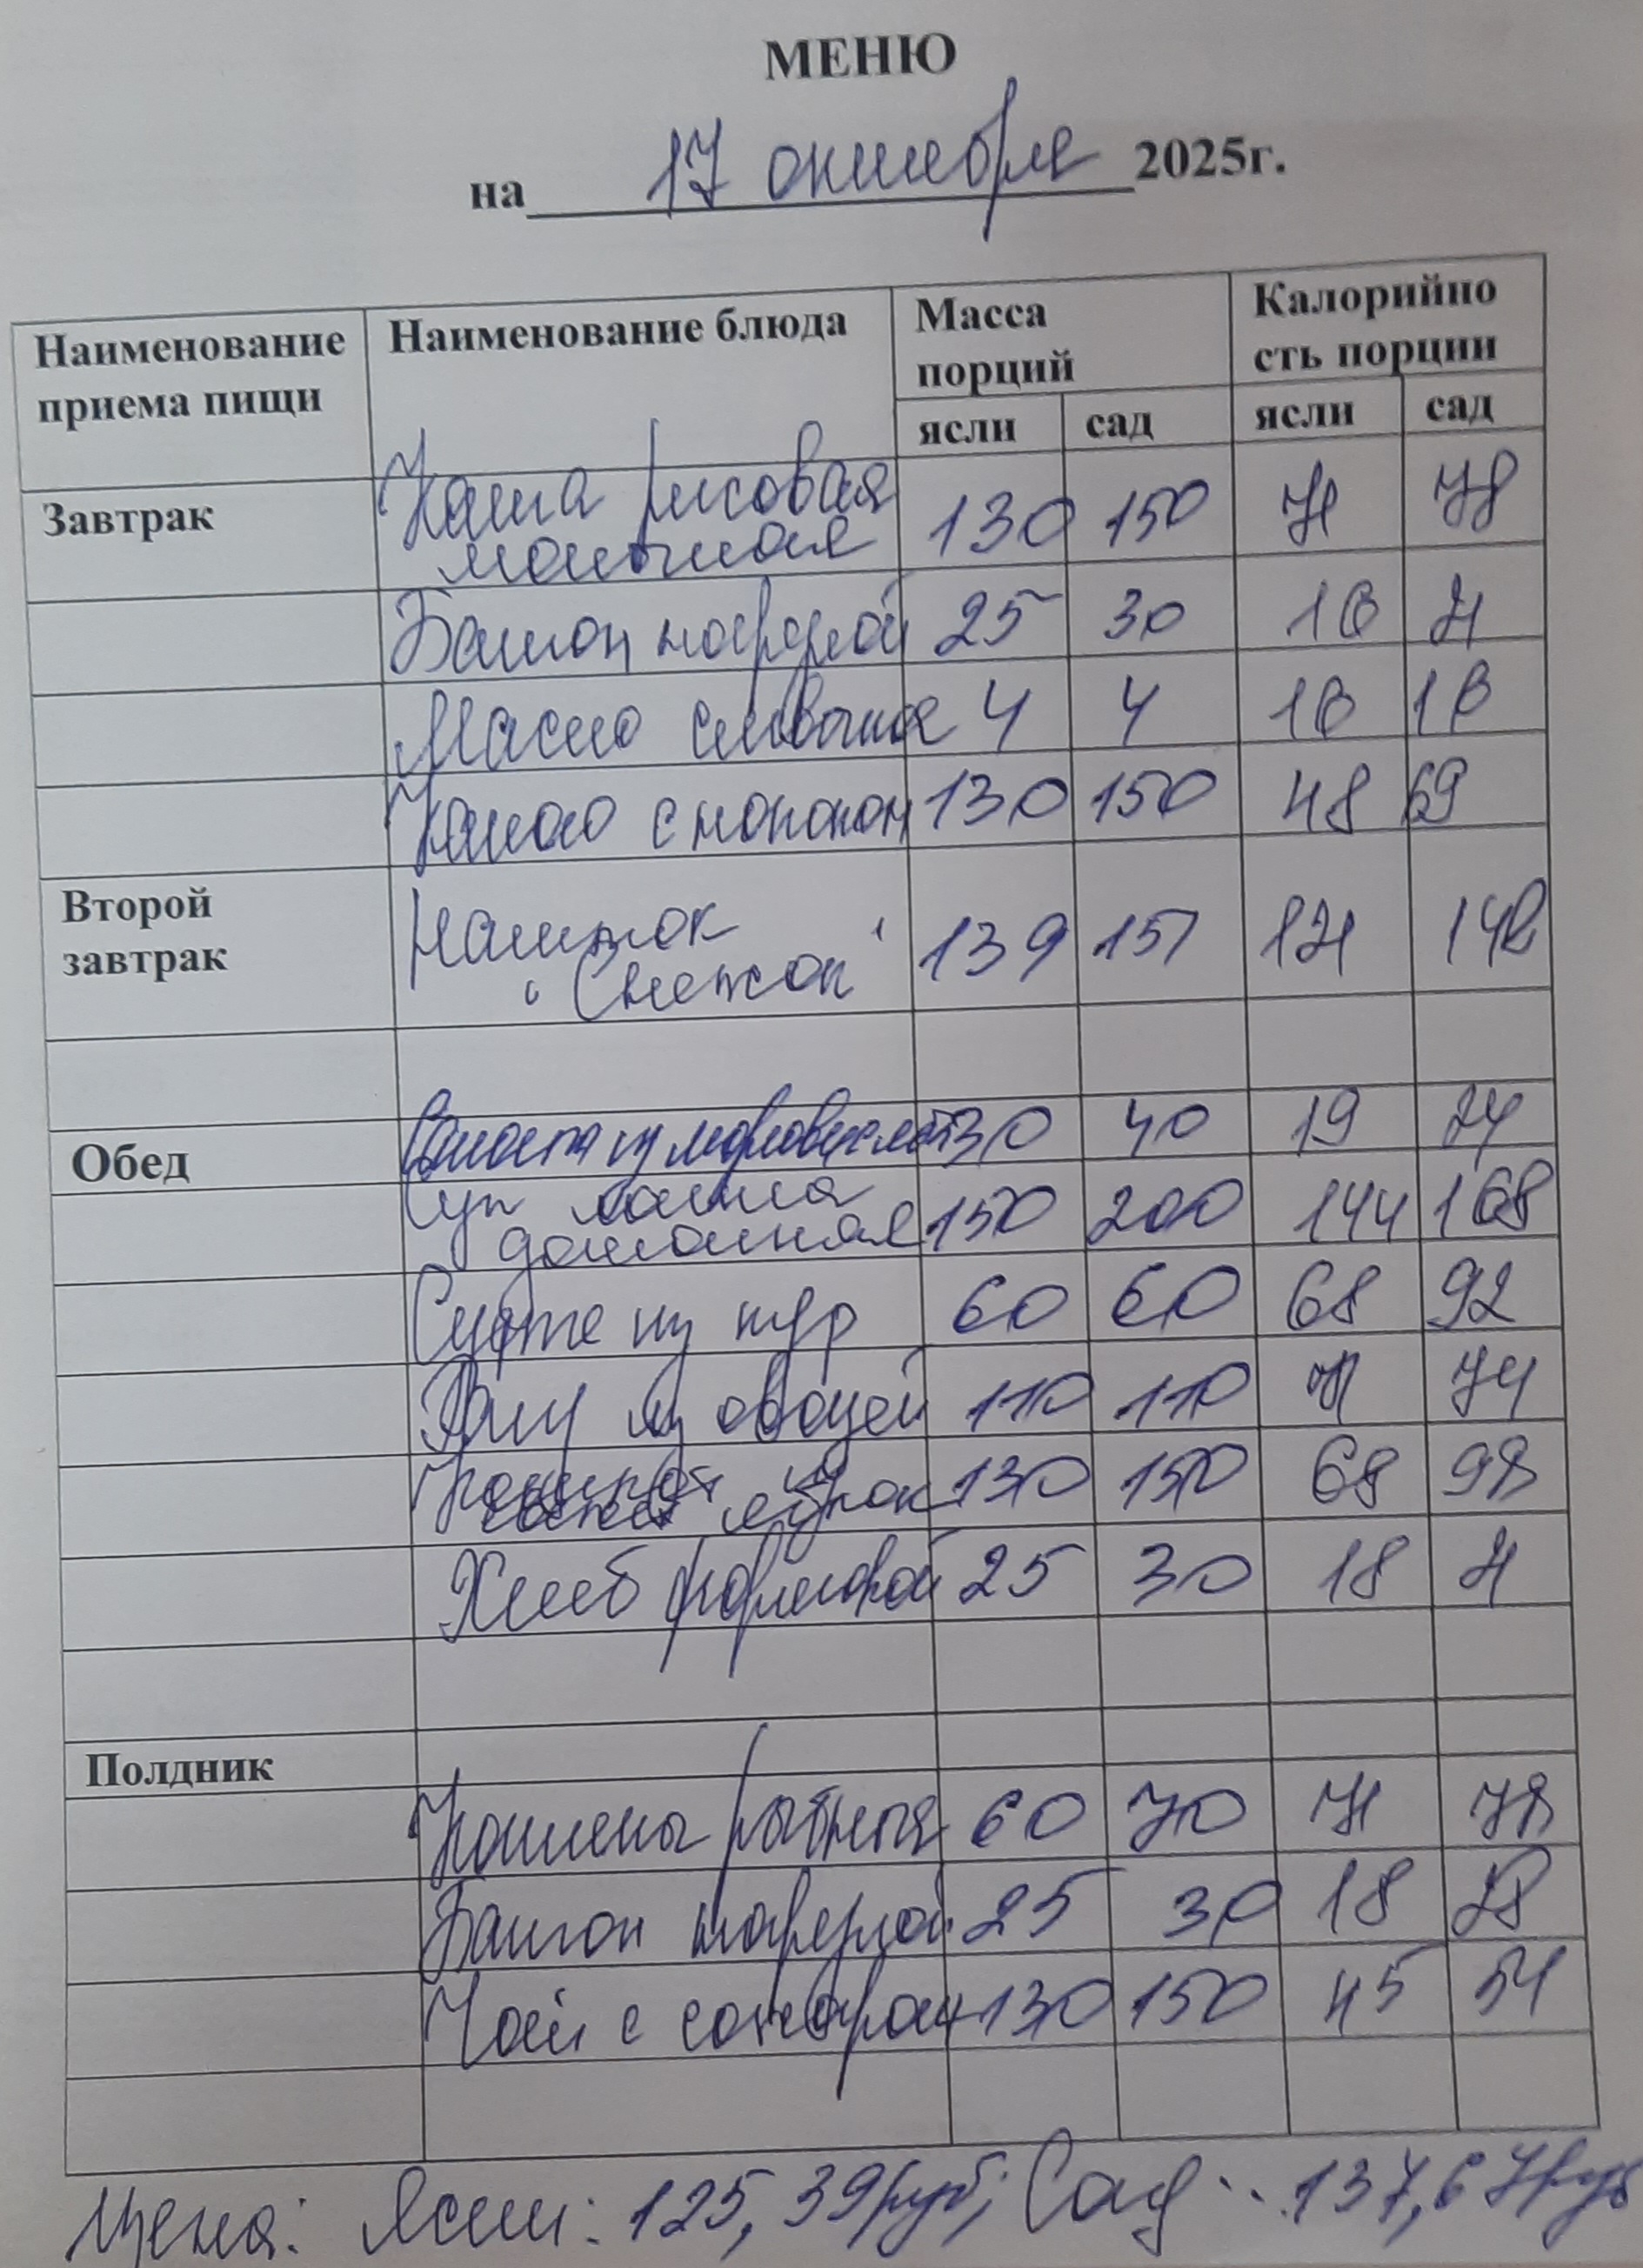 МЕНЮ
на 17 октября 2025г.
Наименование приема пищи Наименование блюда Масса порций Калорийно сть порции
ясли сад ясли сад
Завтрак Каша рисовая молочная 130 150 71 78
Батон нарезной 25 30 18 21
Масло сливочное 4 4 18 18
Какао с молоком 130 150 48 69
Второй завтрак Напиток "Снежок" 139 157 121 142
Обед Салат из моркови 30 40 19 24
Суп лапша домашняя 150 200 144 168
Суфле из кур 60 60 68 92
Рагу из овощей 110 110 71 74
Компот из 130 150 68 98
Хлеб формовой 25 30 18 21
Полдник
Котлета рыбная 60 70 71 78
Батон нарезной 25 30 18 28
Чай с сахаром 130 150 45 54
Цена: Ясли: 125,39руб; Сад: 137,67руб